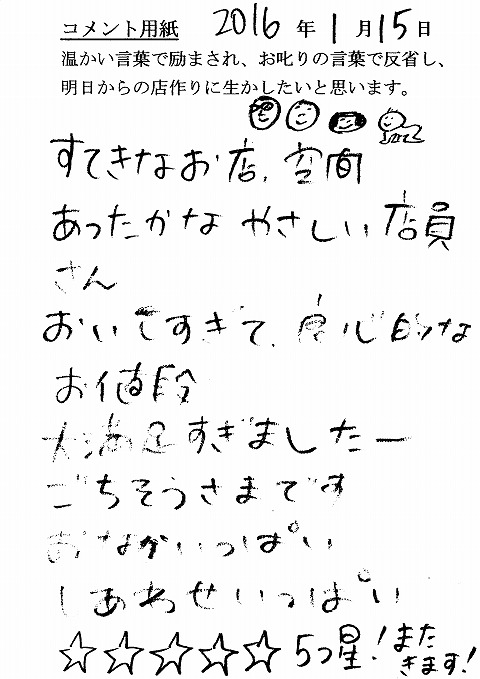 コメント用紙 2016年1月15日
温かい言葉で励まされ、お叱りの言葉で反省し、
明日からの店作りに生かしたいと思います。
すてきなお店、空間
あったかな やさしい店員
さん
おいしすぎて、良心的な
お値段
大満足すぎましたー
ごちそうさまです
おなかいっぱい
しあわせいっぱい
☆☆☆☆☆ 5つ星! また
きます!